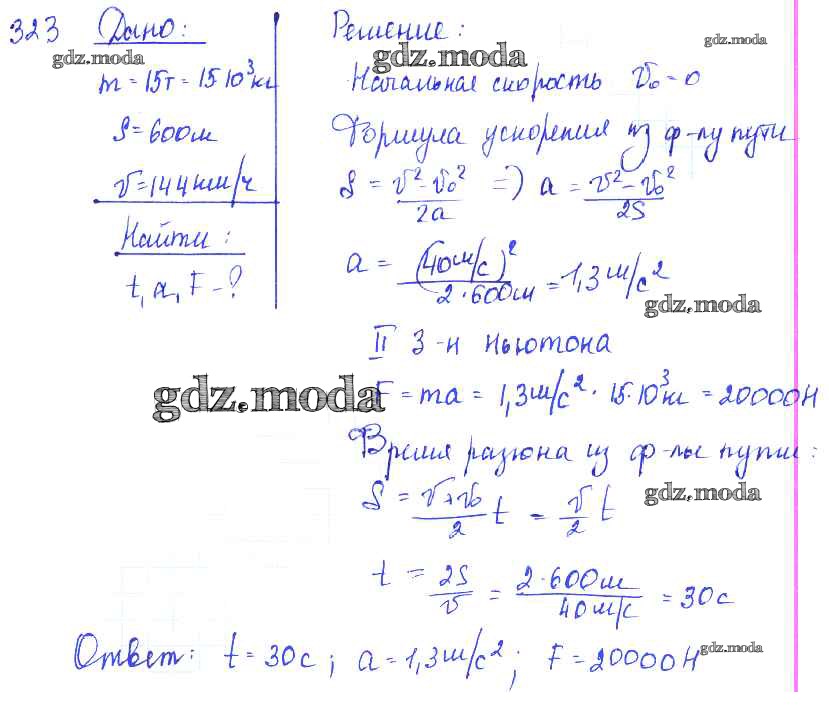 323 Дано:
m = 15т = 15·10³кг
S = 600м
v = 144км/ч
Найти:
t, a, F - ?
Решение:
Начальная скорость v₀ = 0
Формула ускорения из ф-лу пути
S = (v² - v₀²)/2a => a = (v² - v₀²)/2S
a = (40м/с)²/2·600м = 1,3м/с²
II З-н Ньютона
F = ma = 1,3м/с² · 15·10³кг = 20000Н
Время разгона из ф-лы пути:
S = (v + v₀)/2 t = v/2 t
t = 2S/v = 2·600м/40м/с = 30с
Ответ: t = 30с; a = 1,3м/с²; F = 20000Н
gdz.moda
gdz.moda
gdz.moda
gdz.moda
gdz.moda
gdz.moda
gdz.moda